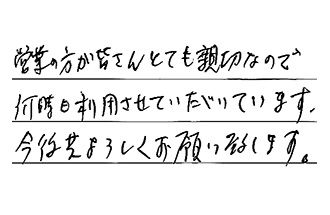 営業の方が皆さんとても親切なので
何時も利用させていただいています。
今後共よろしくお願い致します。